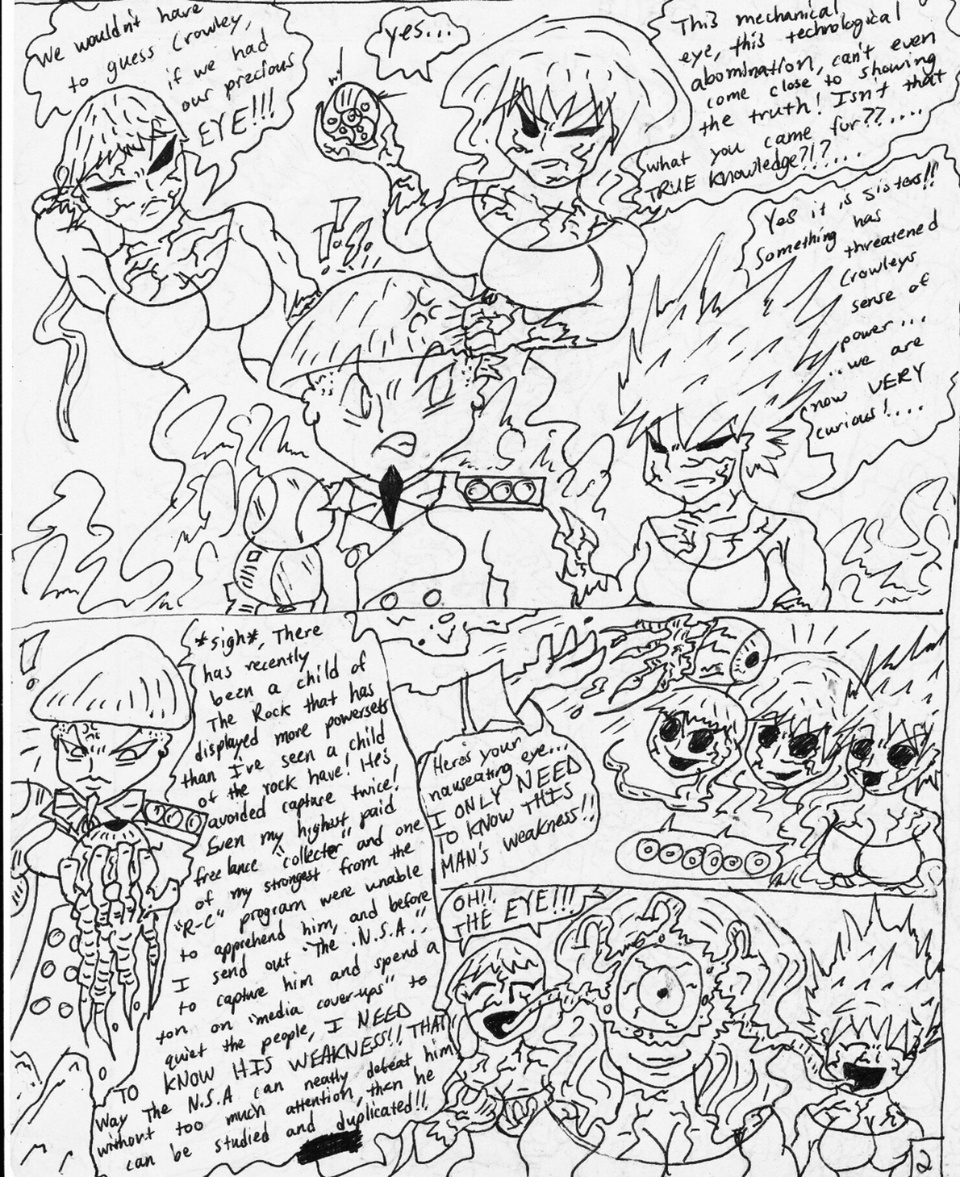 We wouldn't have
to guess Crowley,
if we had
our precious
EYE!!!
yes...
This mechanical
eye, this technological
abomination, can't even
come close to showing
the truth! Isn't that
what you came fur??....
TRUE Knowledge?!?....
!!!
Yes it is sisters!!
Something has
threatened
Crowleys
sense of
power...
...we are
now VERY
curious!....
*sigh*, There
has recently
been a child of
The Rock that has
displayed more powersets
than I've seen a child
of the rock have! He's
avoided capture twice!
Even my highest paid
free lance "collecter" and one
of my strongest from the
"R-C" program were unable
to apprehend him, and before
I send out "The .N.S.A.."
to capture him and spend a
ton on "media cover-ups" to
quiet the people, I NEED
TO KNOW HIS WEAKNESS!! THAT
way The N.S.A can neatly defeat him
without too much attention, then he
can be studied and duplicated!!
Here's your
nauseating eye...
I ONLY NEED
TO KNOW THIS
MAN'S weakness!!
OH!!
THE EYE!!!
2